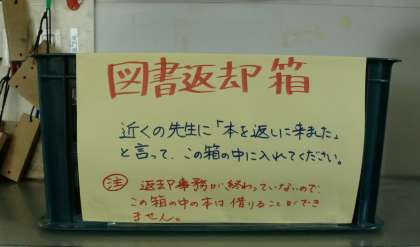 図書返却箱
近くの先生に「本を返しに来ました」
と言って、この箱の中に入れてください。
注 返却事務が終わっていないので、
この箱の中の本は借りることができ
ません。